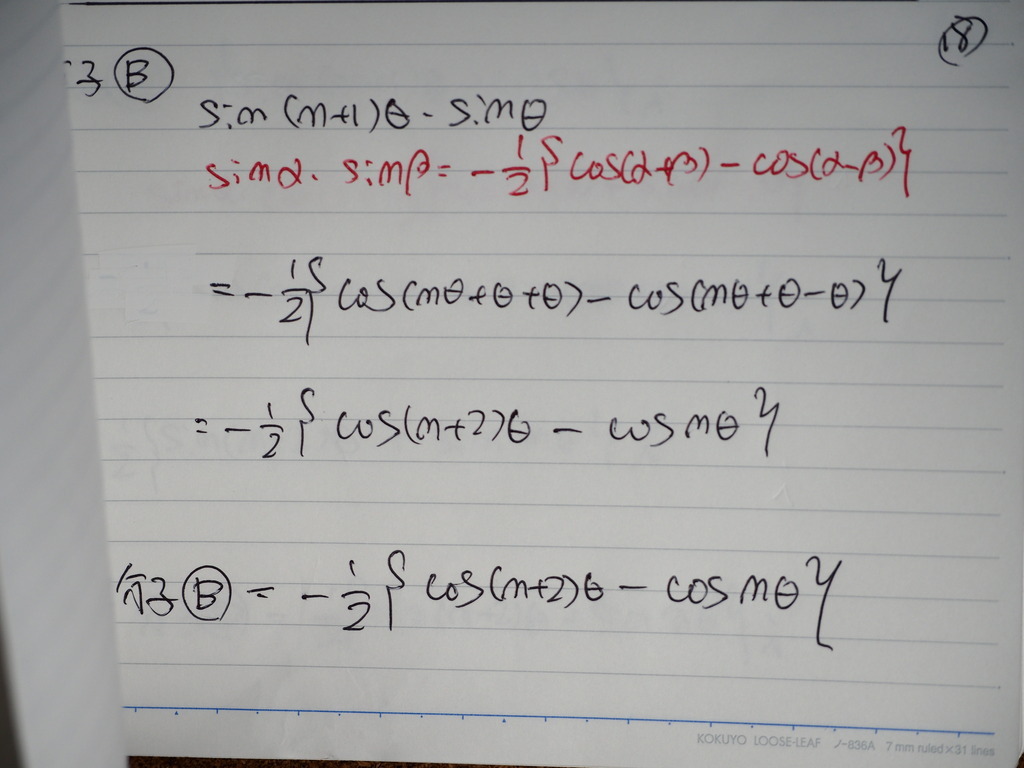 ⑱
子 Ⓑ
sin(n+1)θ・sinθ
sinα・sinβ=-1/2{cos(α+β)-cos(α-β)}
=-1/2{cos(nθ+θ+θ)-cos(nθ+θ-θ)}
=-1/2{cos(n+2)θ-cos nθ}
分子Ⓑ=-1/2{cos(n+2)θ-cos nθ}
KOKUYO LOOSE-LEAF ノ-836A 7 mm ruled×31 lines